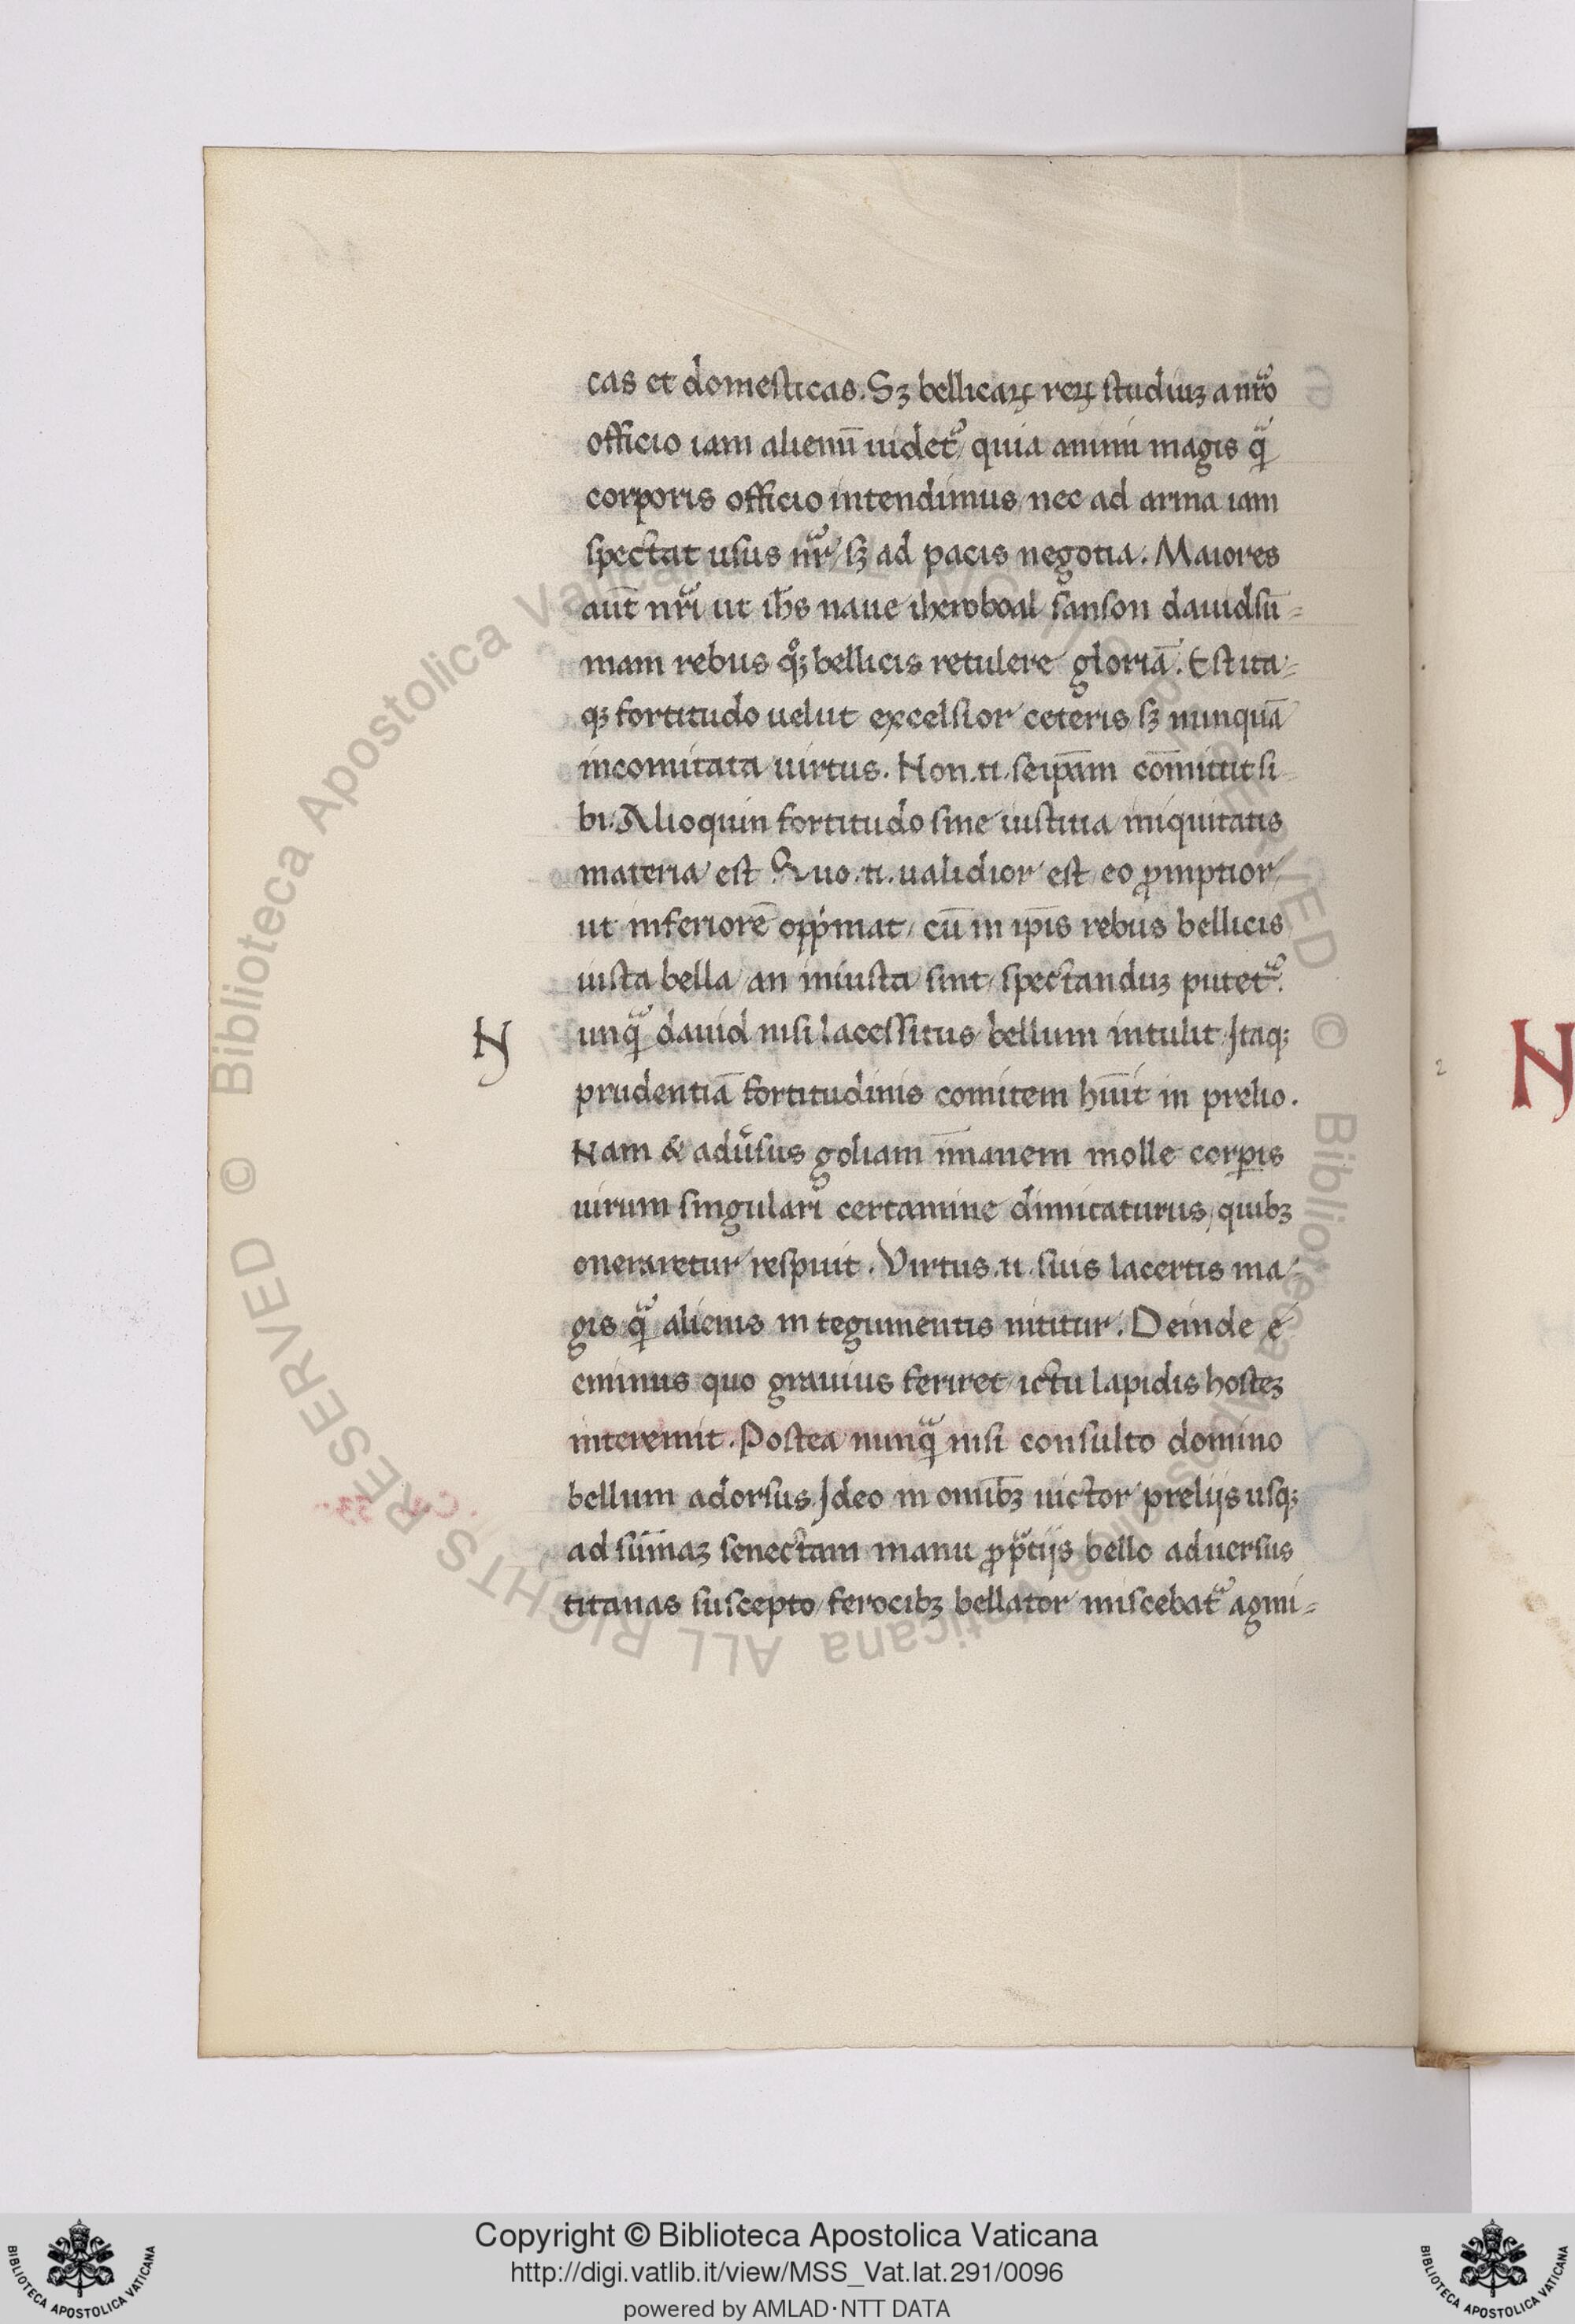 cas et domesticas. Sꝫ bellicaꝝ reꝝ studiuꝫ a nr̃o
officio iam alienū uidet᷑ quia animi magis q̃
corporis officio intendimus nec ad arma iam
spectat usus nr̃ sꝫ ad pacis negotia. Maiores
aūt nr̃i ut ih̄s naue iheroboal sanson dauid sū=
mam rebus qͦꝫ bellicis retulere gloriā. Est ita=
qꝫ fortitudo uelut excelsior ceteris sꝫ nunquā
incomitata uirtus. Non.n.seip̄am cōmittit si=
bi. Alioquin fortitudo sine iustitia iniquitatis
materia est Quo.n.ualidior est eo ꝓmptior
ut inferiorē opp̍mat, cū in ip̄is rebus bellicis
iusta bella an iniusta sint spectanduꝫ putet᷑.
N unq̃ dauid nisi lacessitus bellum intulit Itaqꝫ
prudentiā fortitudinis comitem hūit in prelio.
Nam & adu̓sus goliam īmanem molle corꝑis
uirum singulari certamine dimicaturus, quibꝫ
oneraretur respuit. Virtus.n.suis lacertis ma=
gis q̃ alienis integumentis nititur. Deinde é
eminus quo grauius feriret ictu lapidis hosteꝫ
interemit. Postea nunq̃ nisi consulto domino
bellum adorsus Ideo in omībꝫ uictor prelijs usqꝫ
ad sūmaꝫ senectam manu ꝓp̃tijs bello aduersus
titanas suscepto ferocibꝫ bellator miscebat᷑ agmi=
N
© Biblioteca Apostolica Vaticana ALL RIGHTS RESERVED © Biblioteca Apostolica Vaticana ALL RIGHTS RESERVED
Copyright © Biblioteca Apostolica Vaticana
http://digi.vatlib.it/view/MSS_Vat.lat.291/0096
powered by AMLAD·NTT DATA
BIBLIOTECA APOSTOLICA VATICANA
BIBLIOTECA APOSTOLICA VATICANA